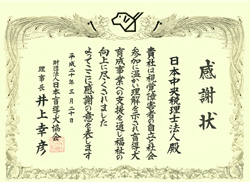 感謝状
日本中央税理士法人 殿
貴社は視覚障害者の自立と社会
参加に温かい理解を示され盲導犬
育成事業への支援を通し福祉の
向上に尽くされました
よってここに感謝の意を表します
平成二十年三月二十日
財団法人日本盲導犬協会
理事長 井上幸彦